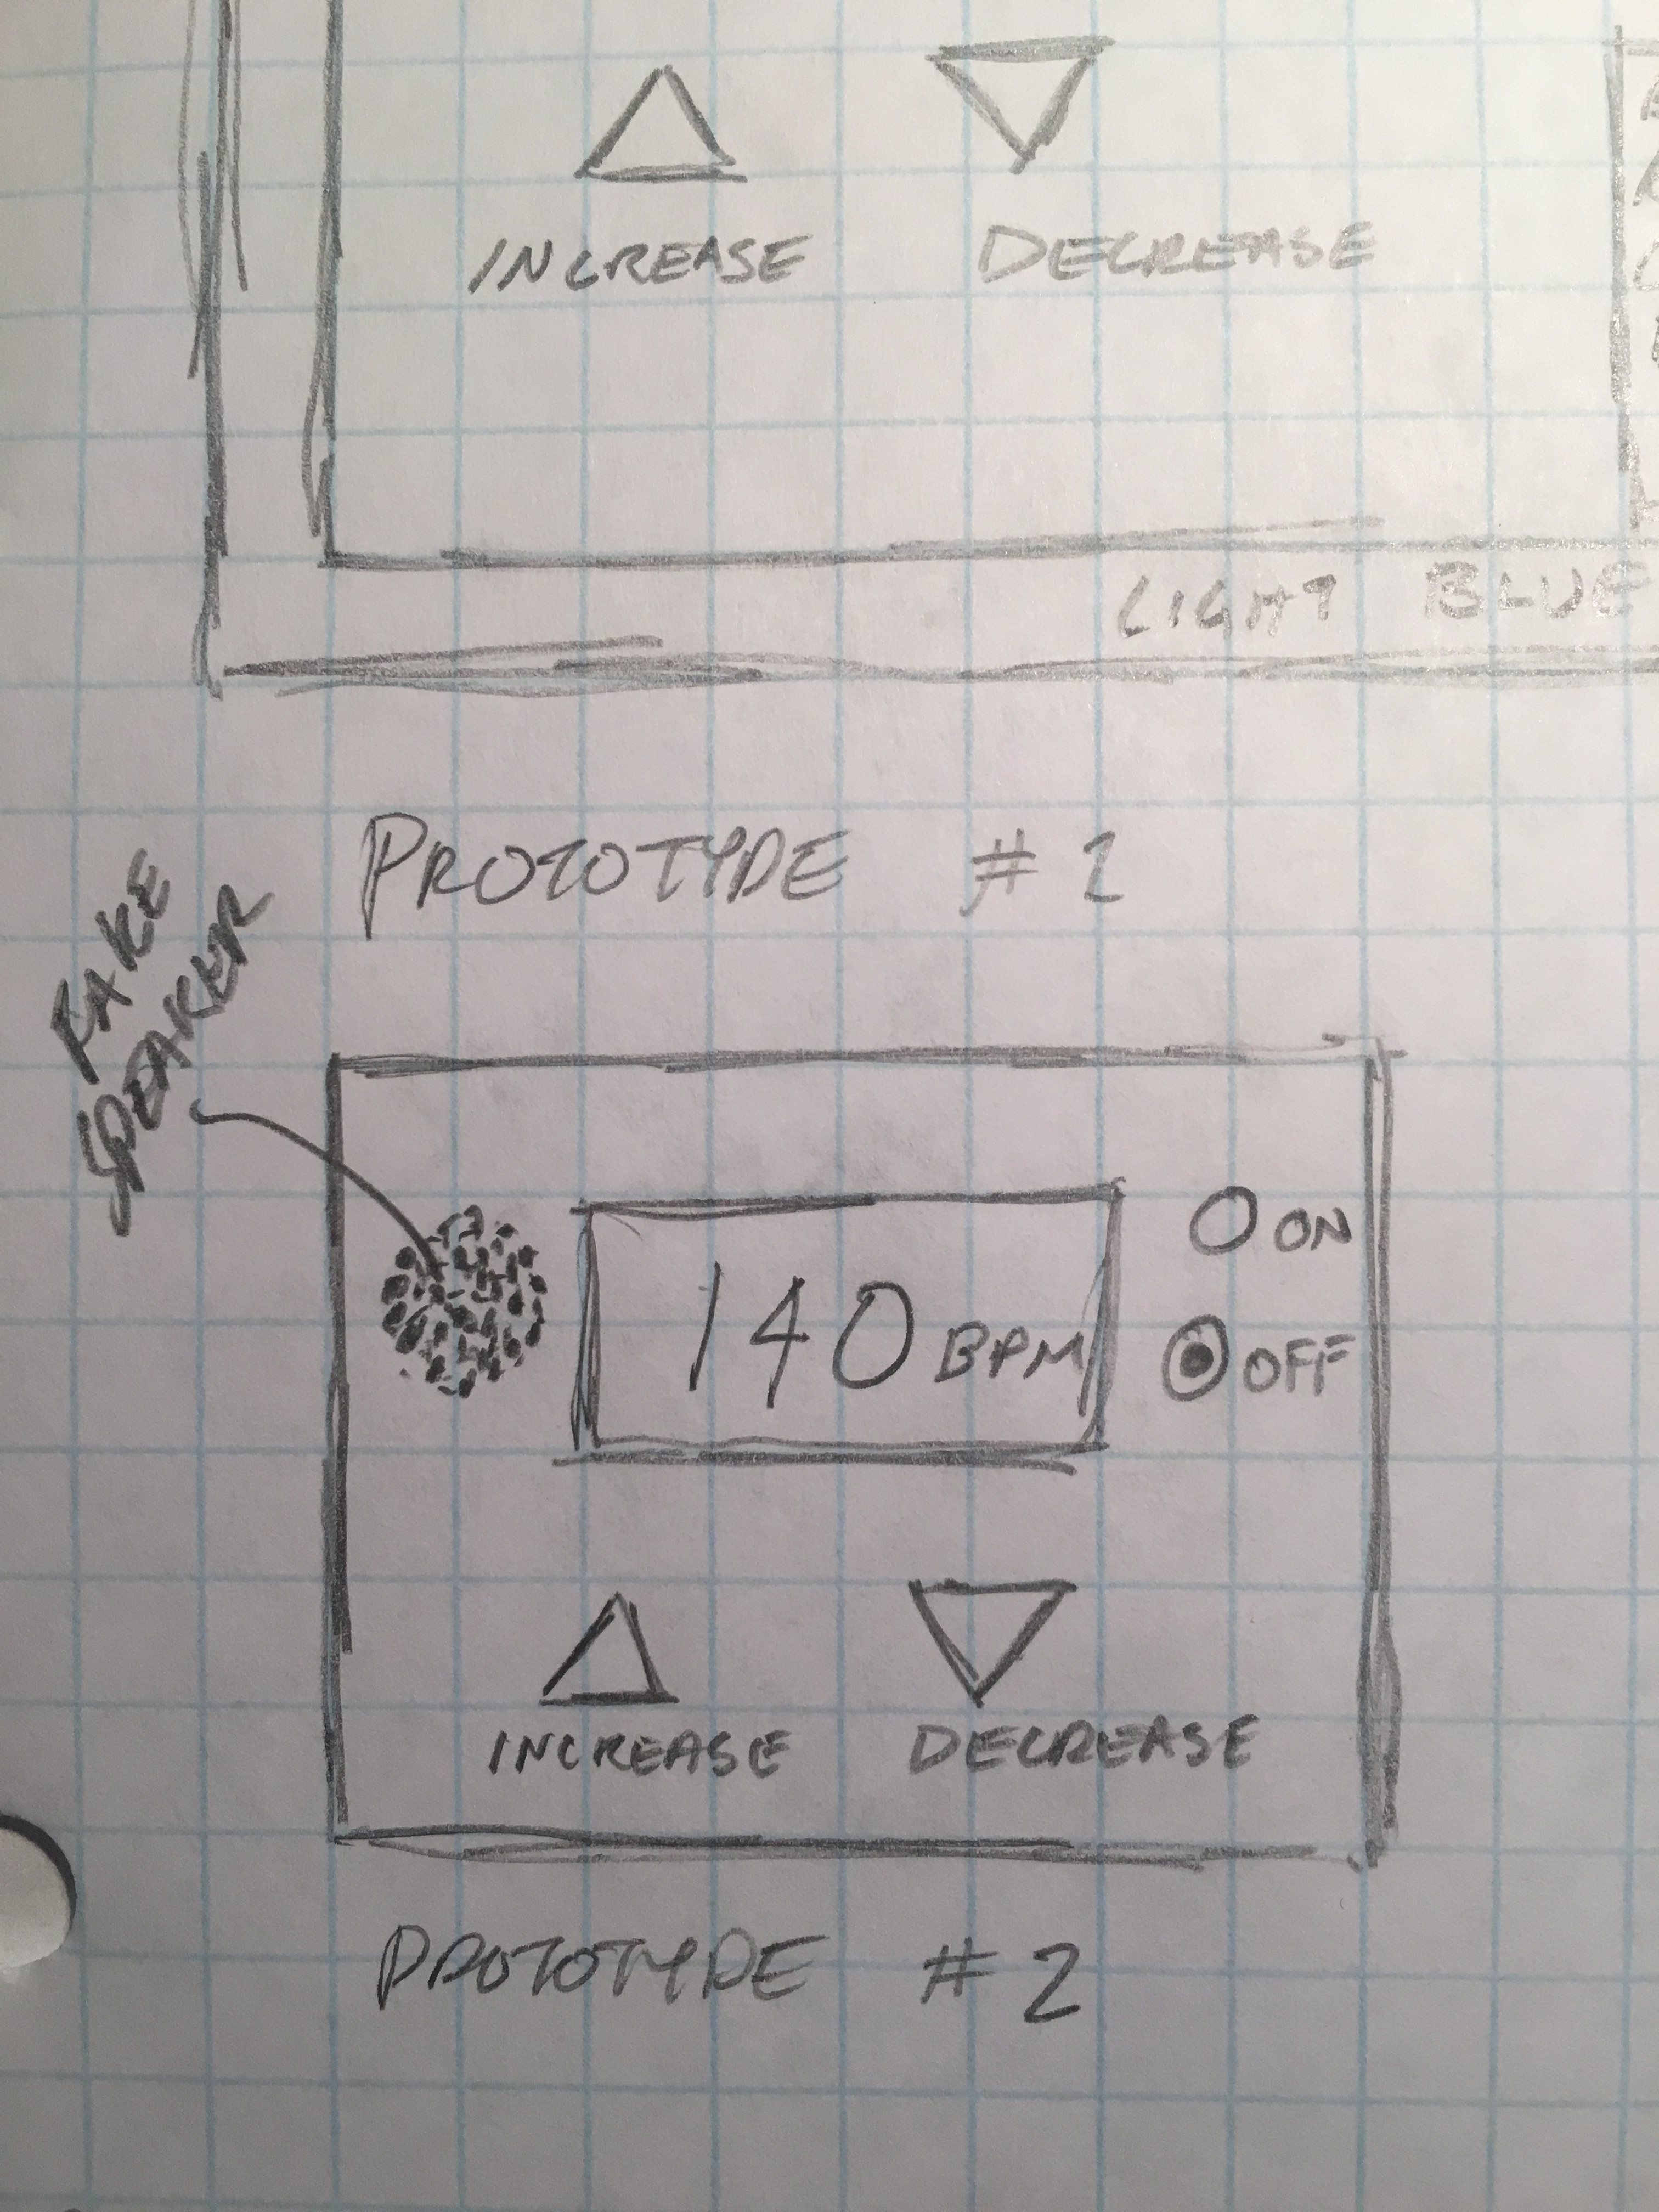 INCREASE DECREASE
LIGHT BLUE
PROTOTYPE # 1
FAKE
SPEAKER
ON
140 BPM
OFF
INCREASE DECREASE
PROTOTYPE # 2